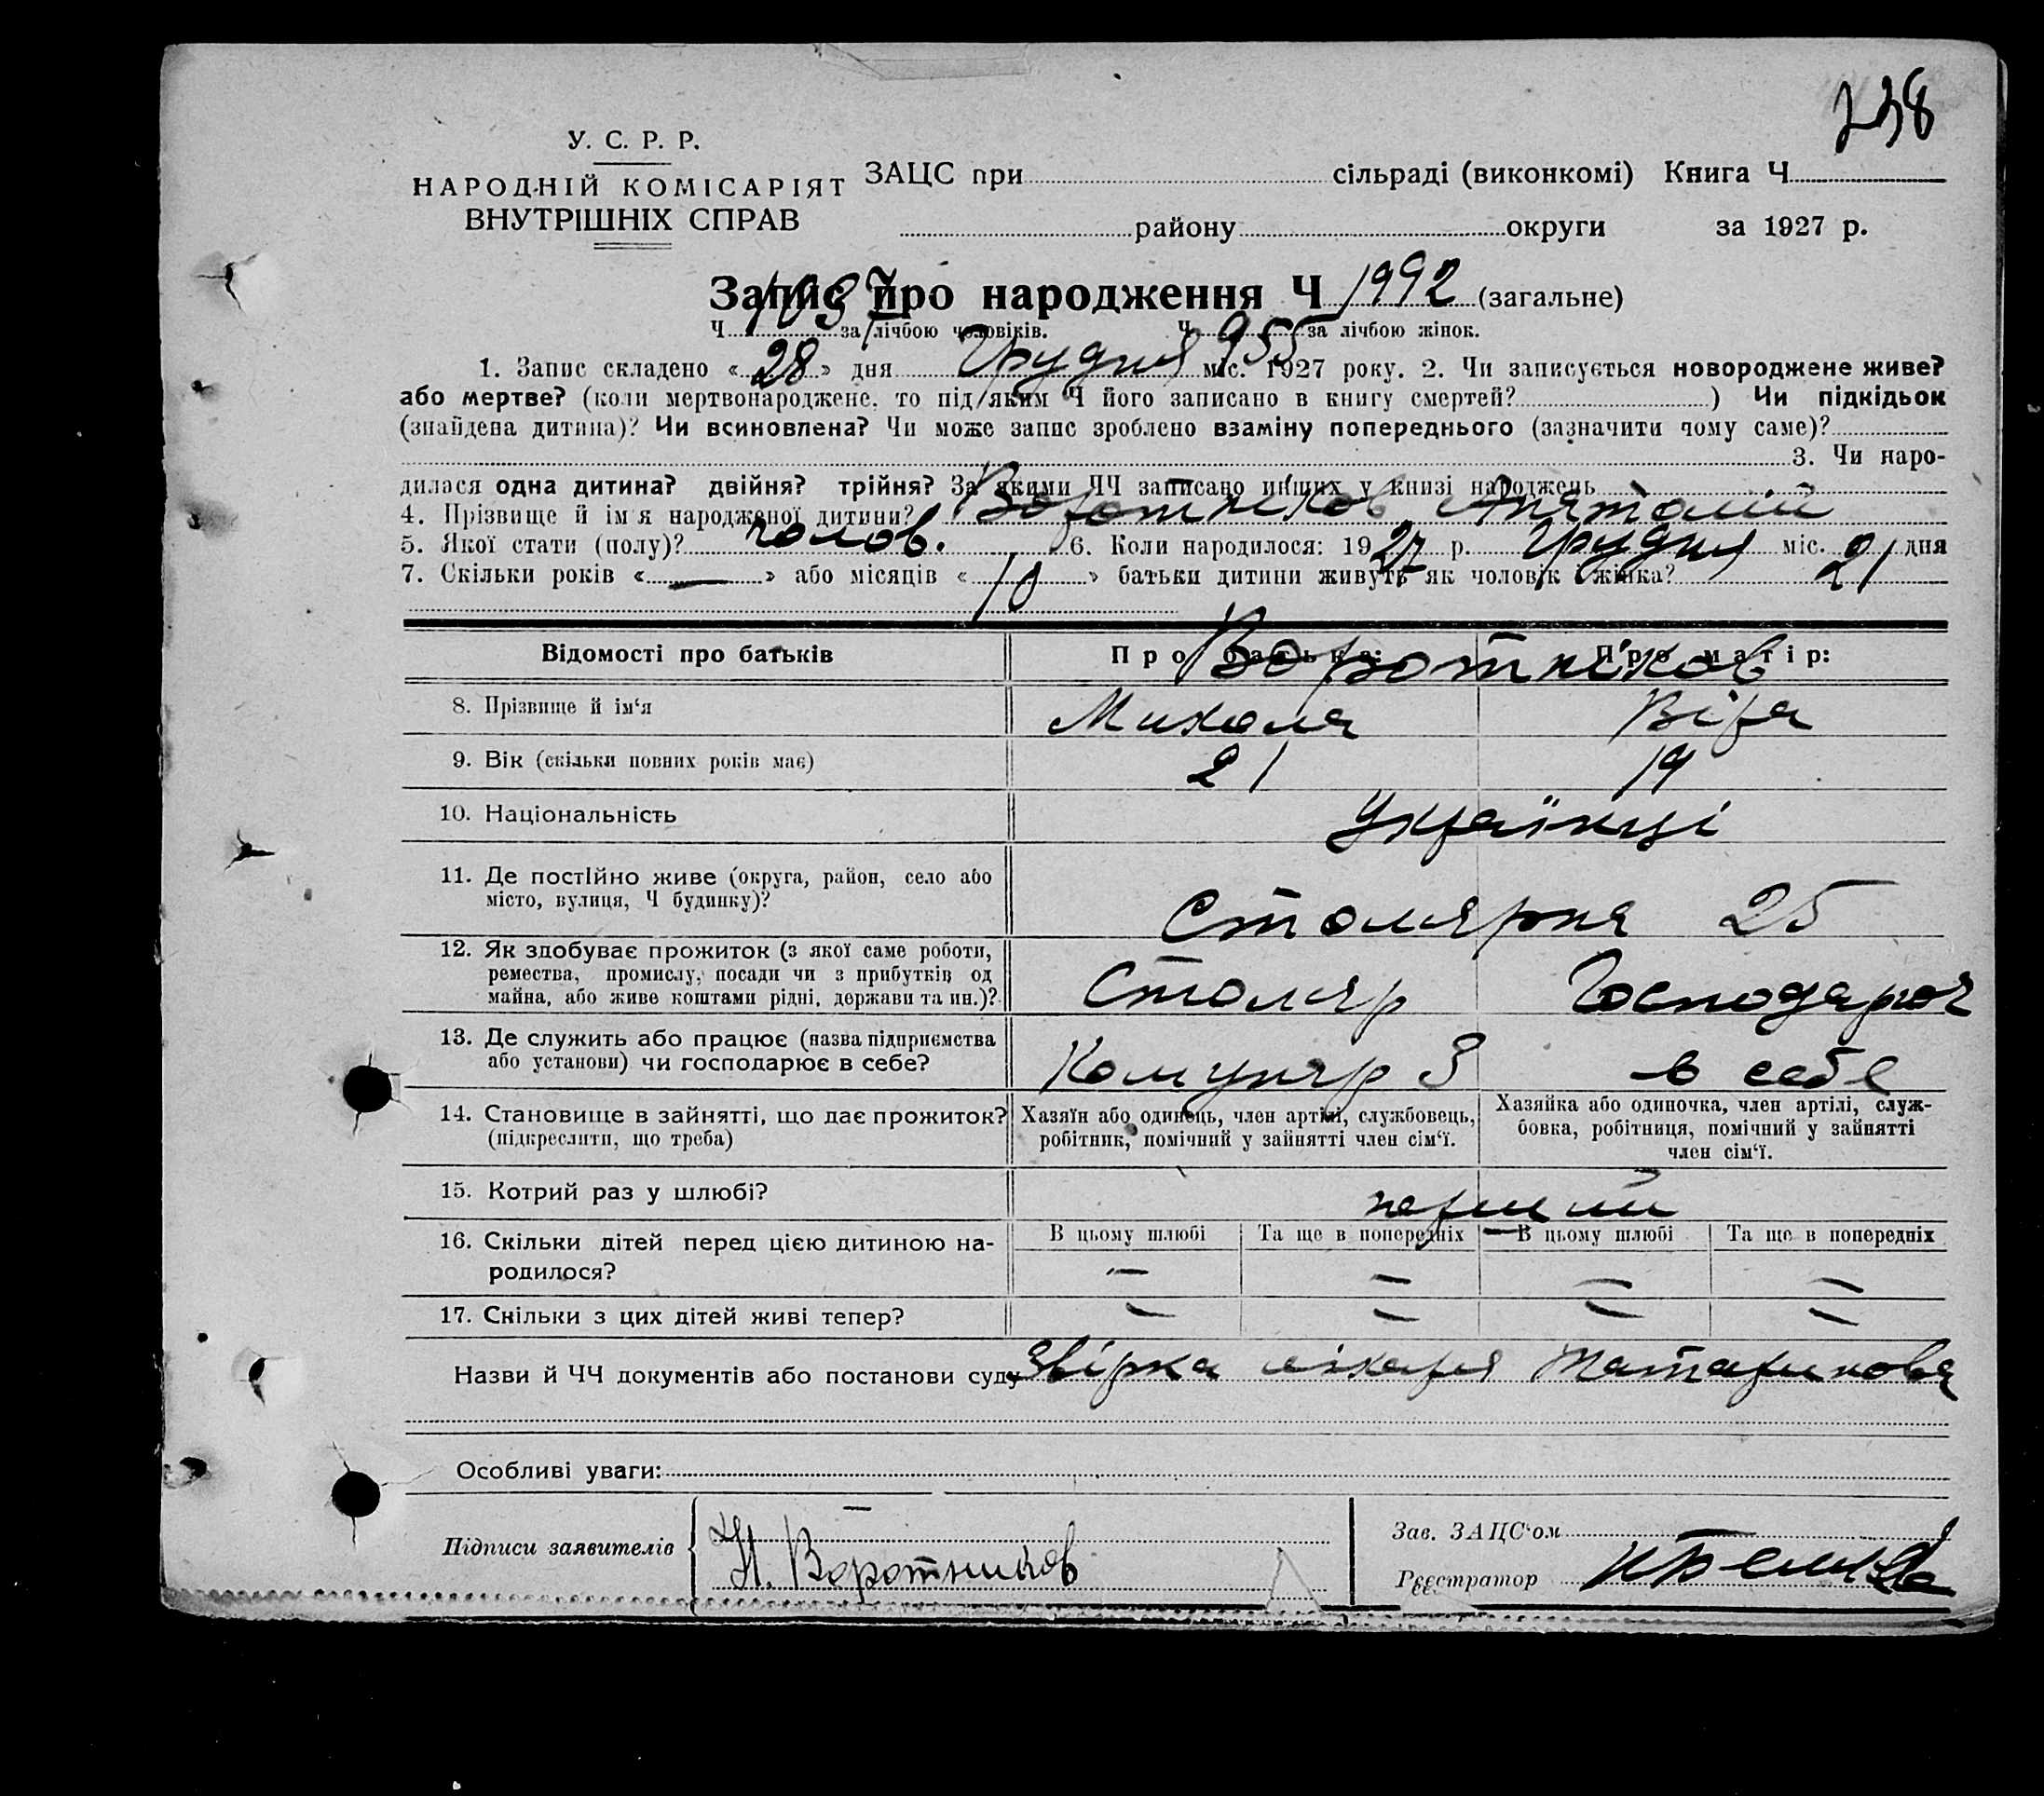 738
У. С. Р. Р.
НАРОДНІЙ КОМІСАРІЯТ
ВНУТРІШНІХ СПРАВ
ЗАЦС при сільраді (виконкомі) Книга Ч
району округи за 1927 р.
Запис про народження Ч 1992 (загальне)
Ч 1037 за лічбою чоловіків. Ч 955 за лічбою жінок.
1. Запис складено «28» дня Грудня міс. 1927 року. 2. Чи записується новороджене живе?
або мертве? (коли мертвонароджене, то під яким Ч його записано в книгу смертей? ) Чи підкідьок
(знайдена дитина)? Чи всиновлена? Чи може запис зроблено взаміну попереднього (зазначити чому саме)?
3. Чи наро-
дилася одна дитина? двійня? трійня? За якими ЧЧ записано инших у книзі народжень
4. Прізвище й ім'я народженої дитини? Воротніков Анатолій
5. Якої стати (полу)? чолов. 6. Коли народилося: 1927 р. Грудня міс. 21 дня
7. Скільки років «—» або місяців «10» батьки дитини живуть як чоловік і жінка?
Відомості про батьків Про батька: Про матір:
Воротніков
8. Прізвище й ім‘я Микола Віра
9. Вік (скільки повних років має) 21 19
10. Національність Українці
11. Де постійно живе (округа, район, село або
місто, вулиця, Ч будинку)? Столярна 25
12. Як здобуває прожиток (з якої саме роботи,
ремества, промислу, посади чи з прибутків од
майна, або живе коштами рідні, держави та ин.)? Столяр Господарює
13. Де служить або працює (назва підприємства
або установи) чи господарює в себе? Комунар 3 в себе
14. Становище в зайнятті, що дає прожиток?
(підкреслити, що треба)
Хазяїн або одинець, член артілі, службовець,
робітник, помічний у зайнятті член сім‘ї.
Хазяйка або одиночка, член артілі, служ-
бовка, робітниця, помічний у зайнятті
член сім‘ї.
15. Котрий раз у шлюбі? перший
16. Скільки дітей перед цією дитиною на-
родилося?
В цьому шлюбі Та ще в попередніх В цьому шлюбі Та ще в попередніх
— — — —
17. Скільки з цих дітей живі тепер? — — — —
Назви й ЧЧ документів або постанови суду Звірка лікаря Татаринова
Особливі уваги:
Підписи заявителів Н. Воротников
Зав. ЗАЦС‘ом
Реєстратор